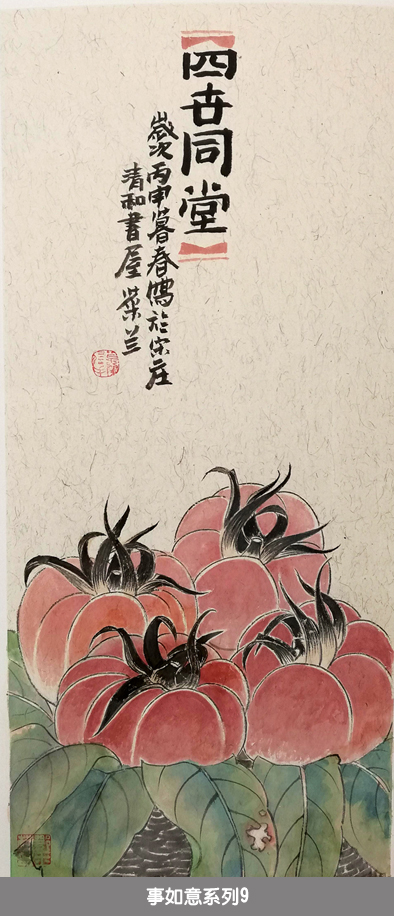 四世同堂
歲次丙申暮春寫於宋庄
清和書屋 紫兰
事如意系列9